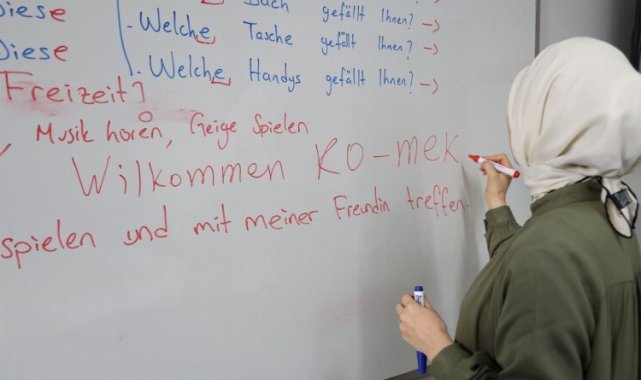 Diese Buch gefällt Ihnen? ->
Diese - Welche Tasche gefällt Ihnen? ->
- Welche Handys gefällt Ihnen? ->
Freizeit?
, Musik horen, Geige Spielen
Wilkommen KO-mek
spielen und mit meiner Freundin treffen.